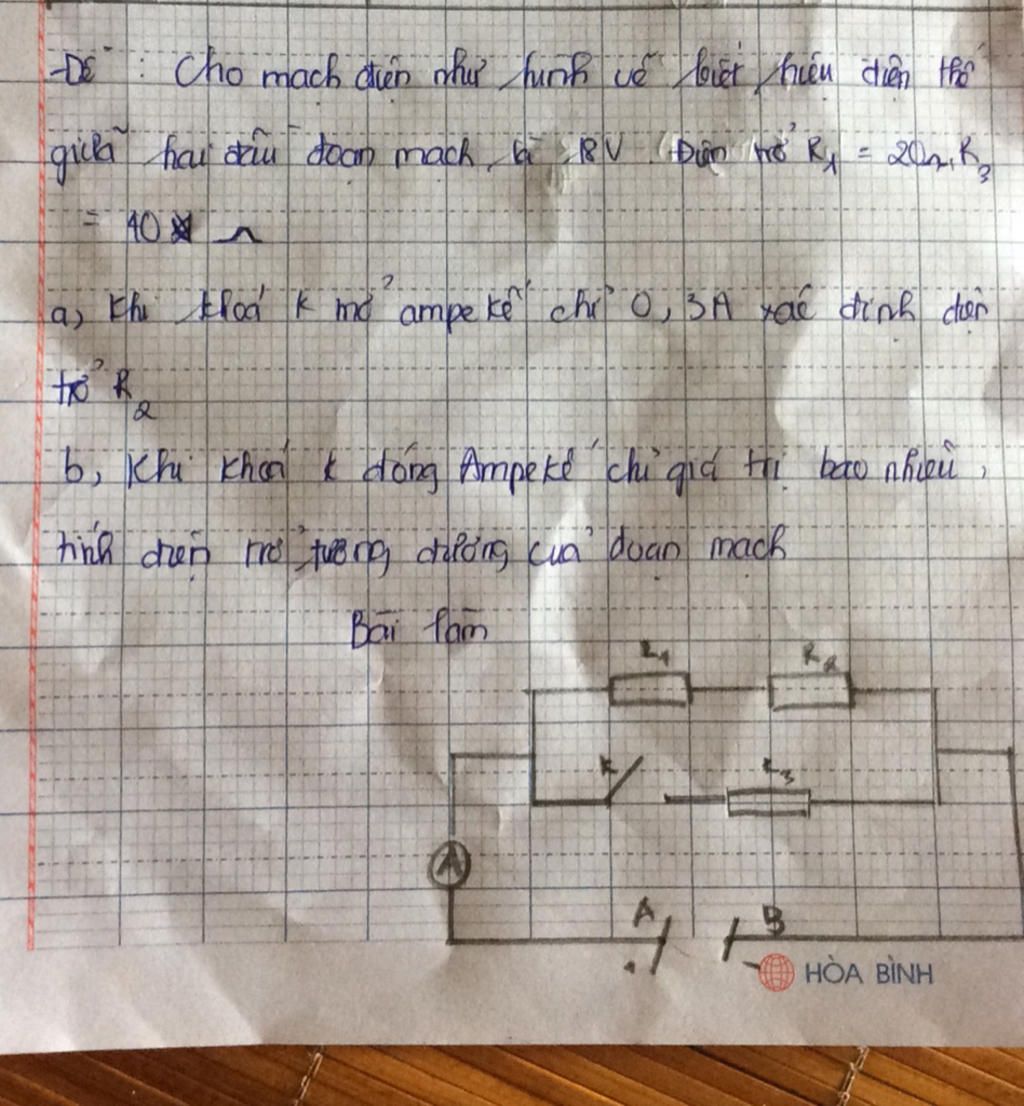 -Đề : Cho mạch điện như hình vẽ biết hiệu điện thế
giữa hai đầu đoạn mạch là 18V. Điện trở R1 = 20Ω, R3
= 40 Ω
a, Khi khoá K mở ampe kế chỉ 0,3A xác định điện
trở R2
b, Khi khoá K đóng Ampe kế chỉ giá trị bao nhiêu,
tính điện trở tương đương của đoạn mạch
Bài làm
R1 R2
K R3
A
A B
HÒA BÌNH